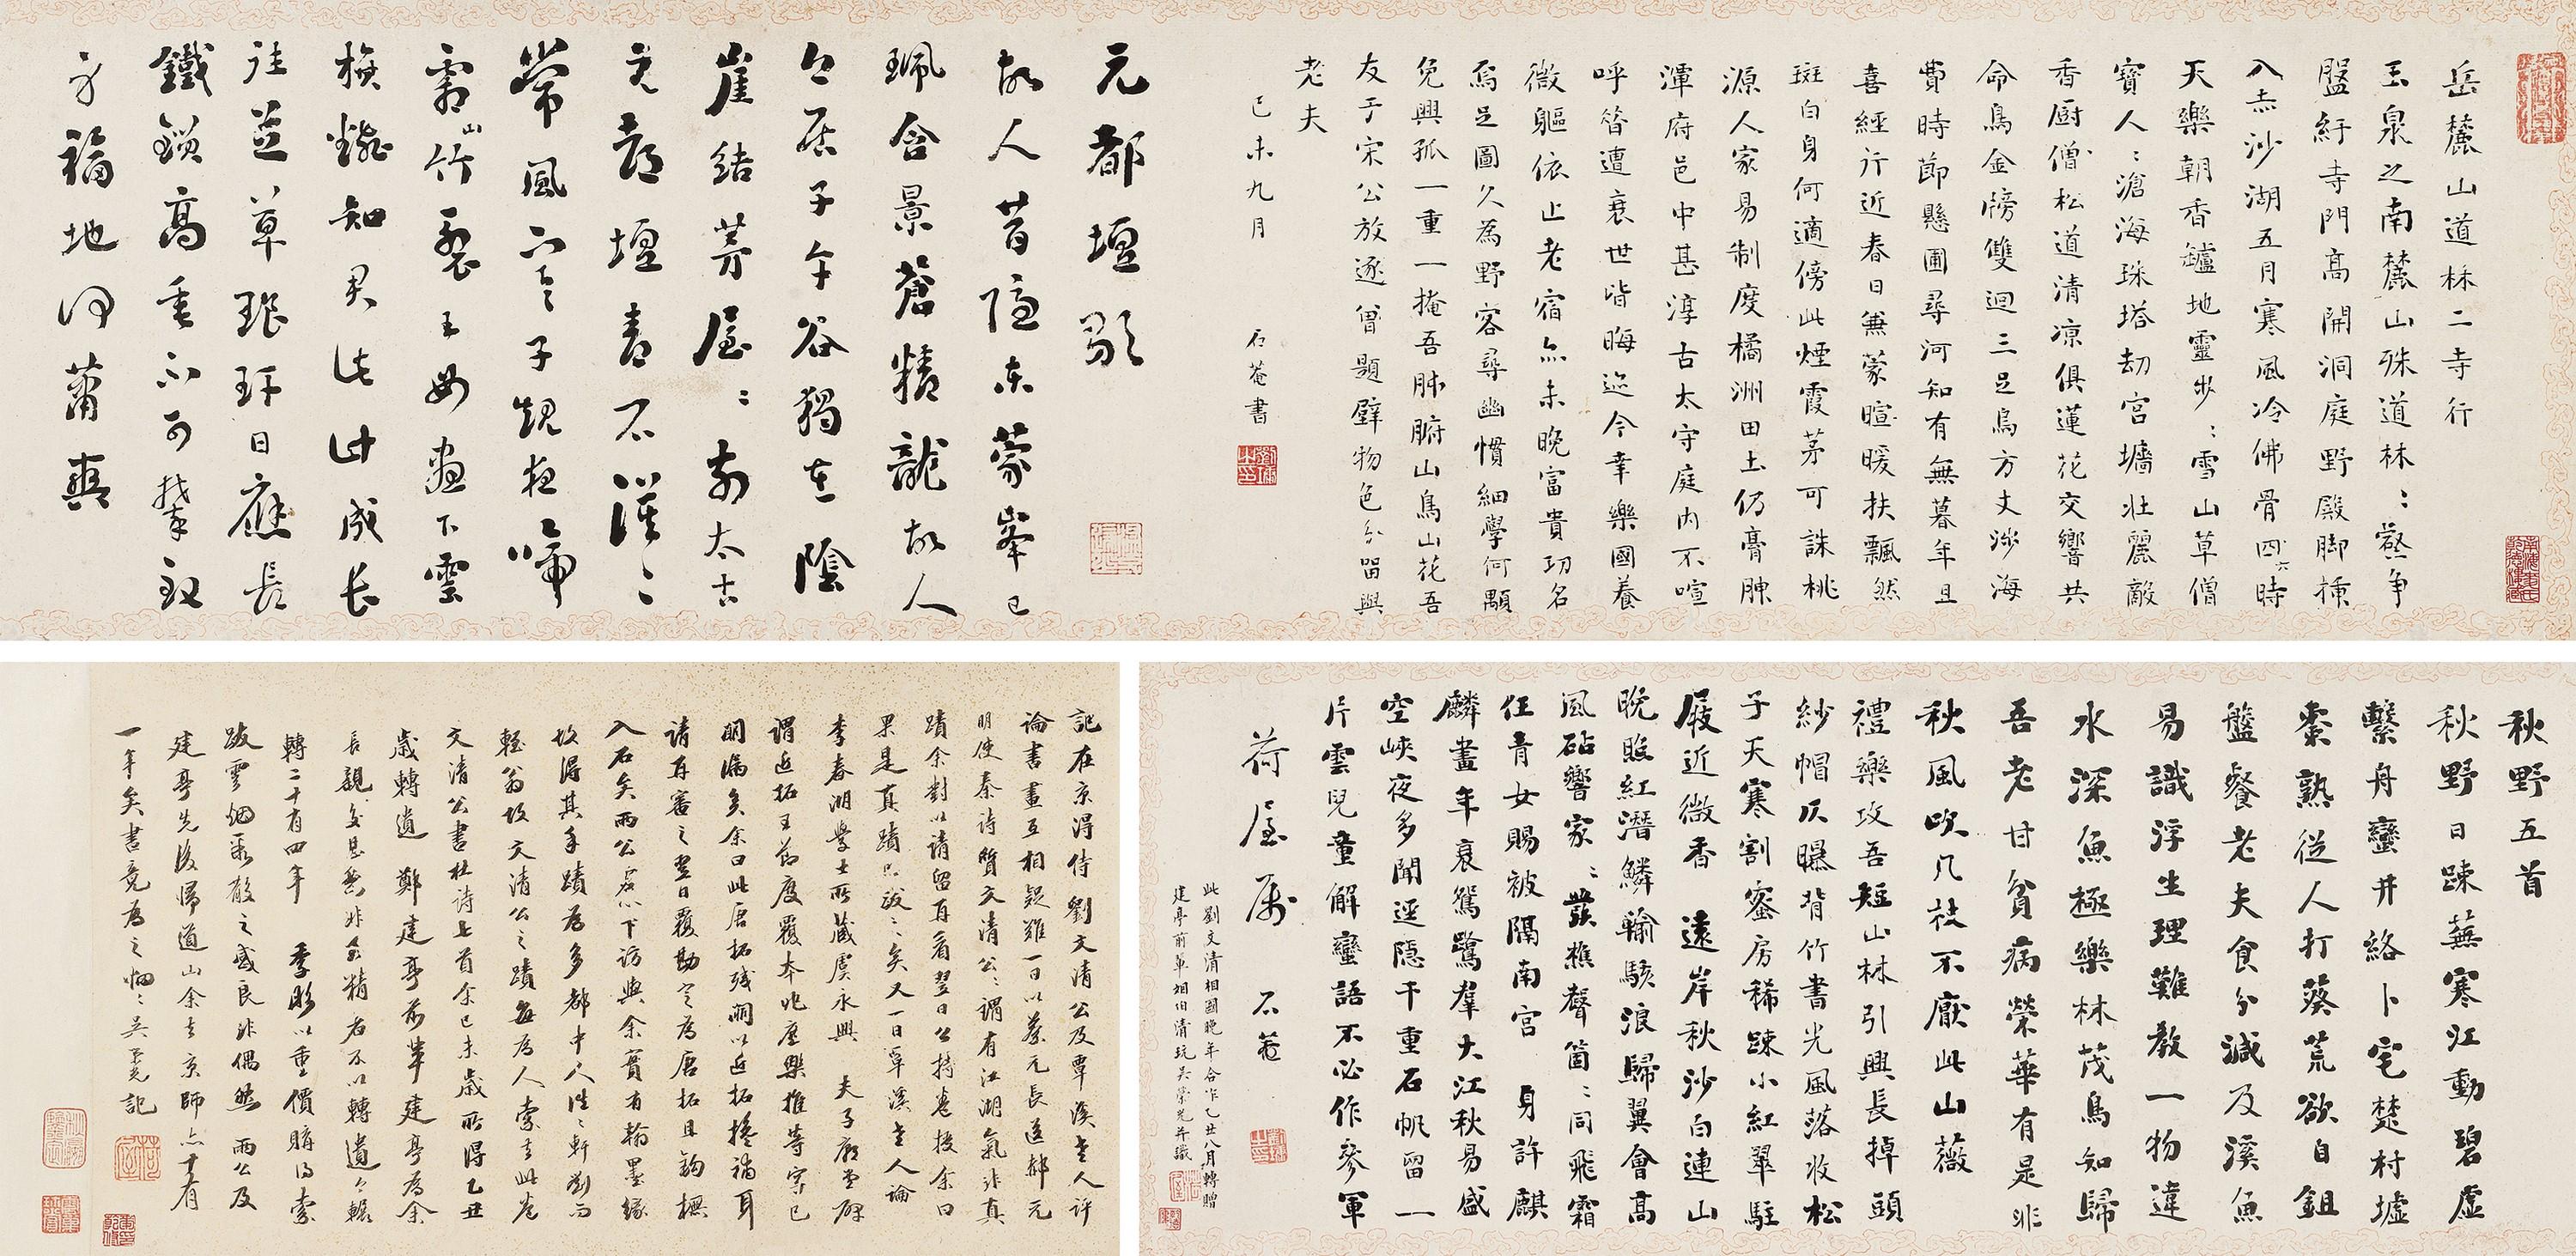 岳麓山道林二寺行
玉泉之南麓山殊道林:壑争
盤紆寺門高開洞庭野殿脚揷
入赤沙湖五月寒風冷佛骨四六時
天樂朝香鑪地靈步:雪山草僧
寶人:滄海珠塔劫宮墻壯麗敵
香厨僧松道清凉俱蓮花交響共
命鳥金牓雙迴三足烏方丈涉海
費時節懸圃尋河知有無暮年且
喜經行近春日兼蒙暄暖扶飄然
斑白身何適傍此煙霞茅可誅桃
源人家易制度橘洲田土仍膏腴
渾府邑中甚淳古太守庭内不喧
呼昝遭衰世皆晦迹今幸樂國養
微軀依止老宿亦未晚富貴功名
焉足圖久為野客尋幽慣細學何顒
免興孤一重一掩吾肺腑山鳥山花吾
友于宋公放逐曾題壁物色分留與
老夫
己未九月　石菴書
元都壇歌
故人昔隱東蒙峯已
珮含景蒼精龍故人
今居子午谷獨在陰
崖結茅屋:前太古
元都壇青石漠:
常風寒子規夜啼
山竹裂王母晝下雲
旗翻知君此計成長
往芝草琅玕日應長
鐵鎖高垂不可攀致
身福地何蕭爽
秋野五首
秋野日疎蕪寒江動碧虛
繫舟蠻井絡卜宅楚村墟
棗熟從人打葵荒欲自鉏
盤飱老夫食分減及溪魚
易識浮生理難教一物違
水深魚極樂林茂鳥知歸
吾老甘貧病榮華有是非
秋風吹几杖不厭此山薇
禮樂攻吾短山林引興長掉頭
紗帽仄曝背竹書光風落收松
子天寒割蜜房稀疎小紅翠駐
屐近微香　遠岸秋沙白連山
晚照紅潛鱗輸駭浪歸翼會高
風砧響家:發樵聲箇:同飛霜
任青女賜被隔南宮　身許麒
麟畫年衰鴛鷺羣大江秋易盛
空峽夜多聞逕隱千重石帆留一
片雲兒童解蠻語不必作參軍
荷屋屬　石菴
此劉文清相國晚年合作乙丑八月轉贈
建亭前輩相伯清玩吳榮光并識
記在京得侍劉文清公及覃溪老人許
論書畫互相疑難一日以蔡元長送郝元
明使秦詩質文清公:謂有江湖氣非真
蹟余對以請留再看翌日公持卷授余曰
果是真蹟只放:矣又一日覃溪老人論
李春湖學士所藏虞永興　夫子廟堂碑
謂近拓王節度覆本非唐樂推等字已
請再審之翌日覆勘定為唐拓且鈎橅
入石矣兩公虛心下訪與余實有翰墨緣
故得其手蹟為多都中人往:軒劉而
輕翁故文清公之蹟每為人索去此卷
文清公書杜詩七首余己未歲所得乙丑
歲轉遺　鄭建亭前輩建亭為余
轉二十有四年　季彤以重價購得索
跋雲烟聚散之感良非偶然　兩公及
建亭先後歸道山余去京師亦十有
一年矣書竟為之惘:吳榮光記